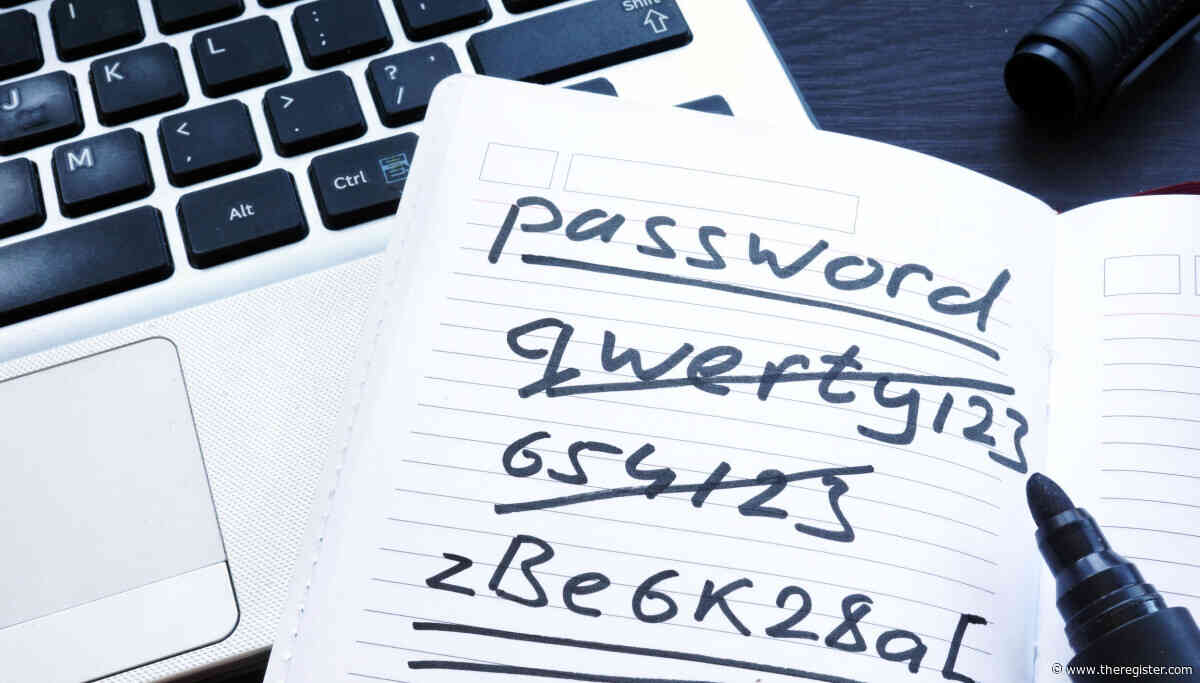 L
: ;
Shift
J
K
> .
? /
M
< ,
Ctrl
Alt
password
qwerty123
654123
zBe6K28a[
© www.theregister.com